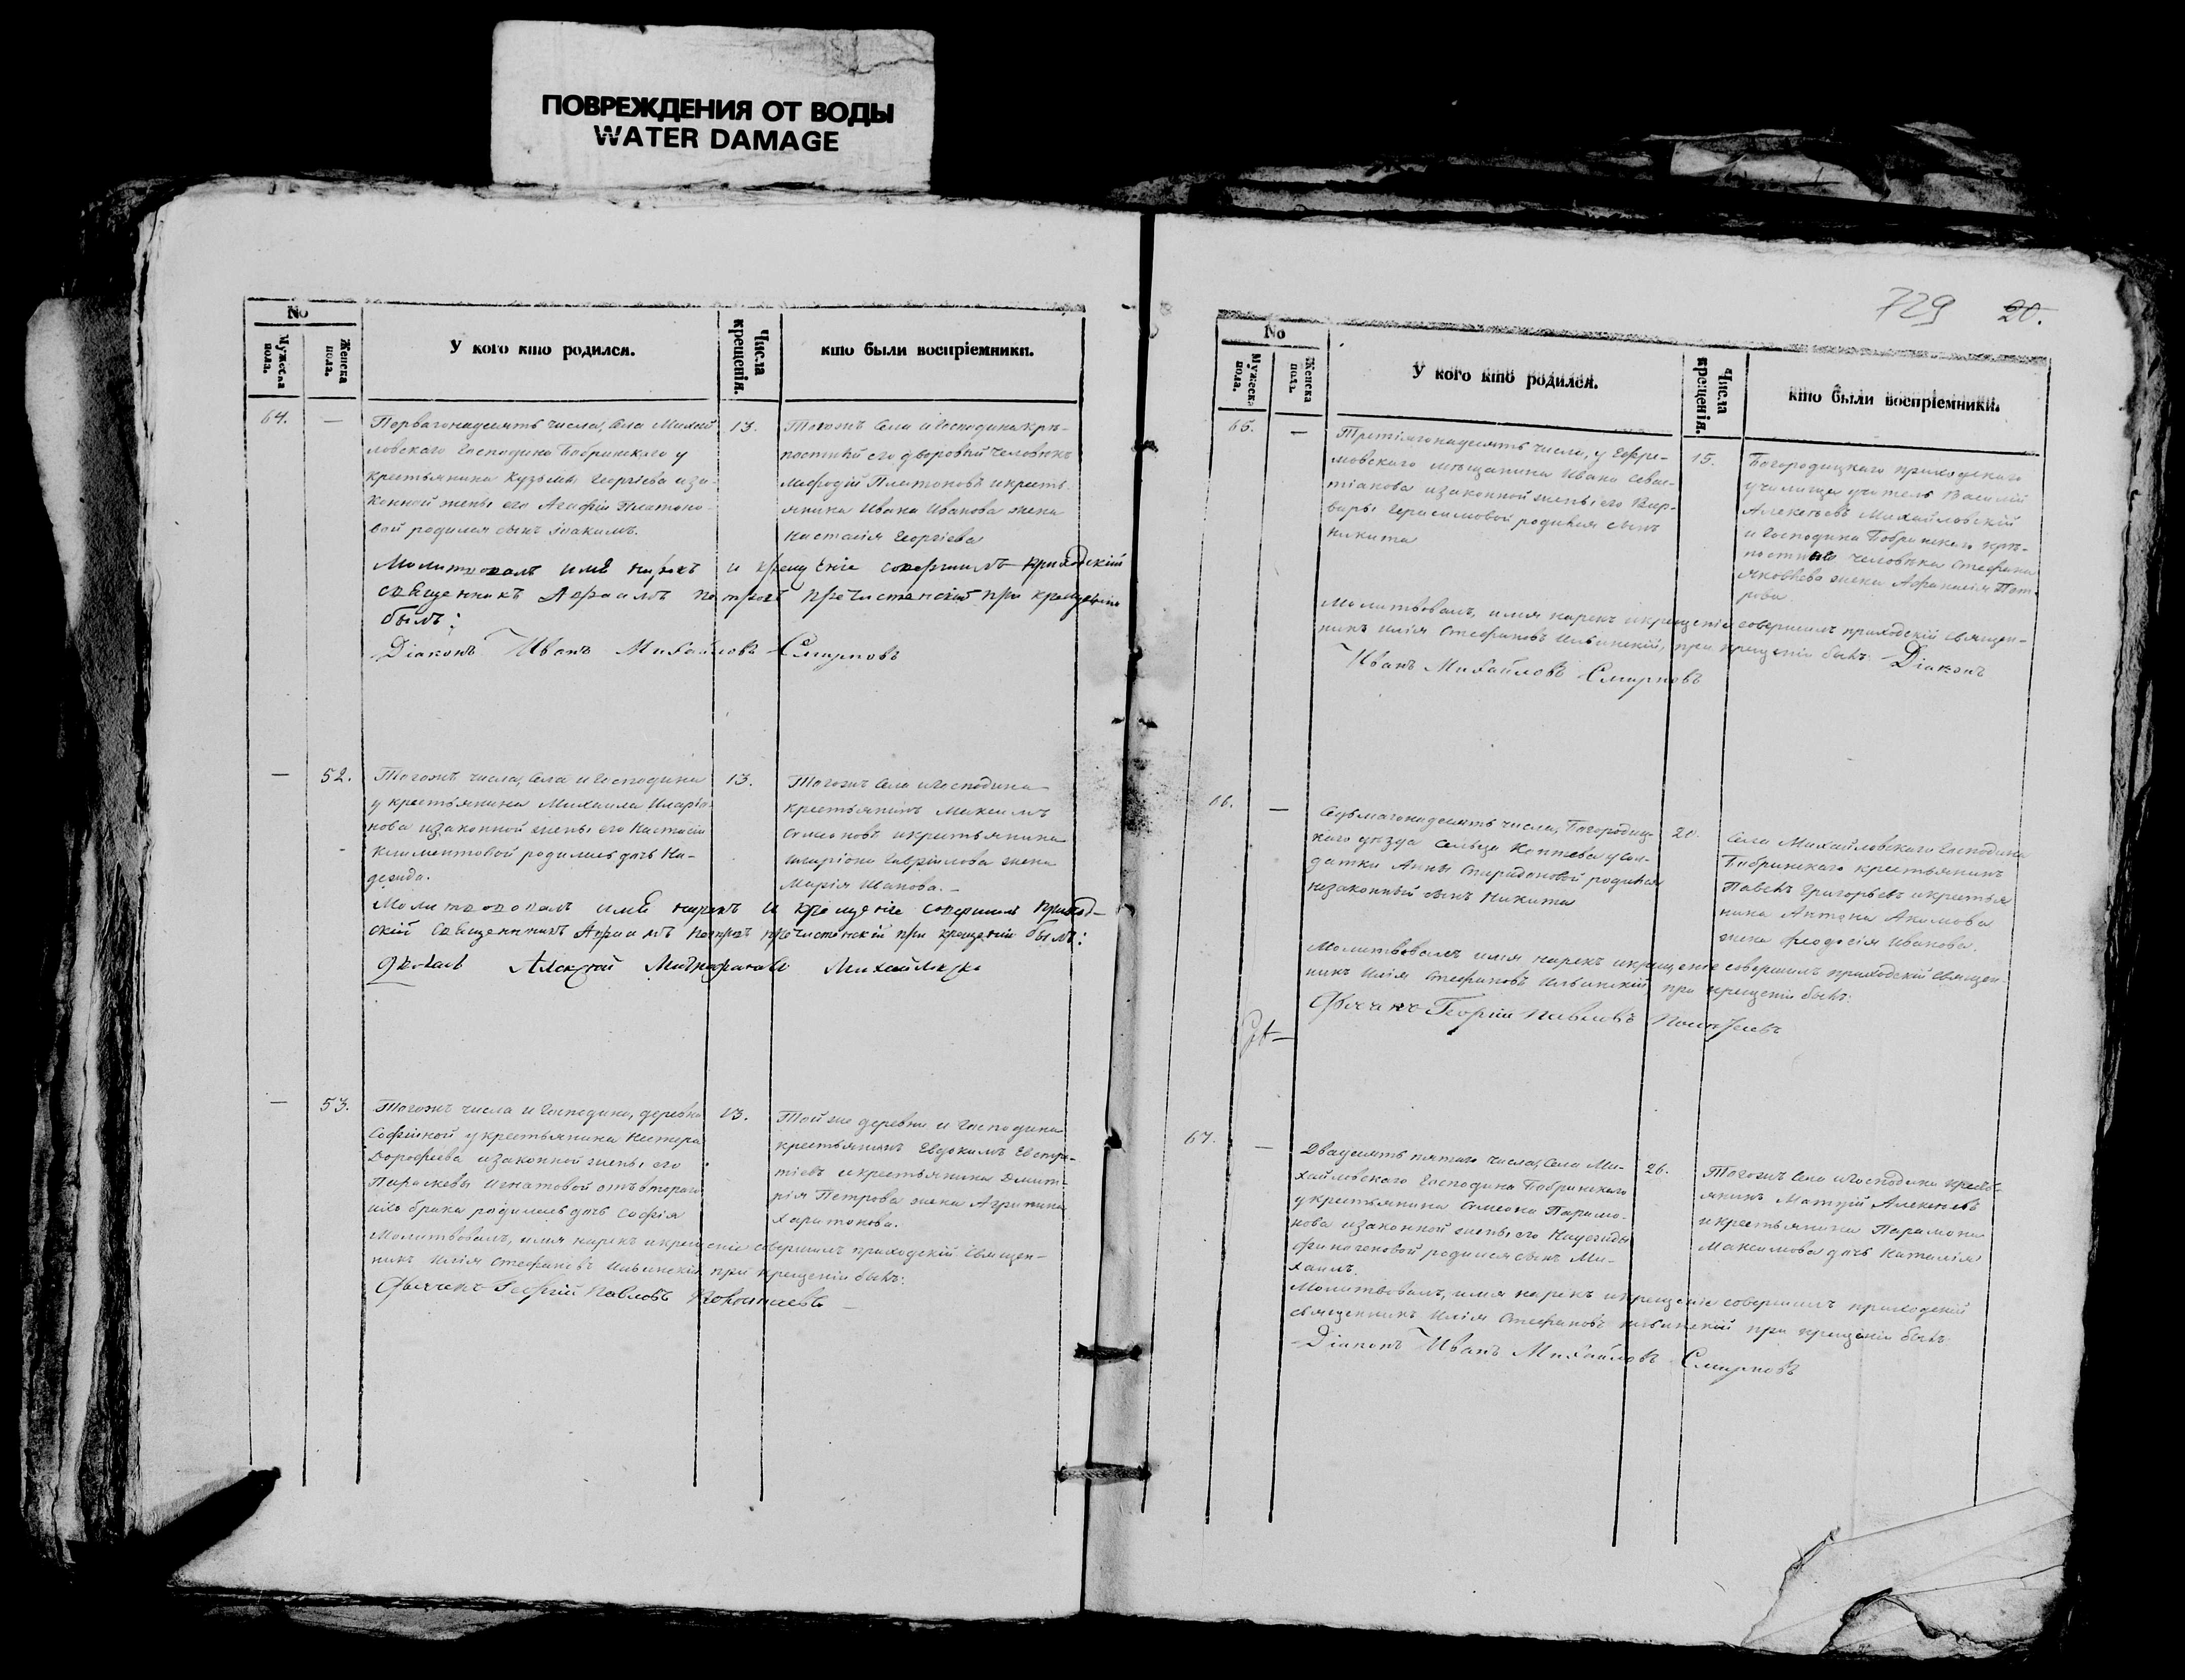 ПОВРЕЖДЕНИЯ ОТ ВОДЫ
WATER DAMAGE
No
Мужеска пола.
Женска пола.
У кого кто родился.
Числа крещенія.
кто были воспріемники.
64.
—
Перваго надесять числа, Села Михай
ловскаго Господина Бобринскаго у
крестьянина Кузьмы Георгіева и за-
конной жены его Агафіи Платоно-
вой родился сынъ Іоакимъ.
13.
Тогожъ Села и Господина крѣ-
постный его дворовый человѣкъ
Меѳодій Платоновъ и кресть-
янина Ивана Иванова жена
Настасія Георгіева
Молитвовалъ имя нарекъ и крещеніе совершилъ приходскій
священникъ Авраамъ Петровъ Пречистенскій при крещеніи
былъ:
Діаконъ Иванъ Михайловъ Смирновъ
—
52.
Тогожъ числа, Села и Господина
у крестьянина Михаила Иларіо-
нова и законной жены его Настасіи
Климентовой родилась дочь На-
дежда.
13.
Тогожъ Села и Господина
крестьянинъ Максимъ
Симеоновъ и крестьянина
Иларіона Гавріилова жена
Марія Иванова. —
Молитвовалъ имя нарекъ и крещеніе совершилъ приход-
скій Священникъ Авраамъ Петровъ Пречистенскій при крещеніи былъ:
Алексей
—
53.
Тогожъ числа и Господина, деревни
Софьиной у крестьянина Нестера
Дорофеева и законной жены его
Параскевы Игнатовой отъ втораго
ихъ брака родилась дочь Софія
13.
Той же деревни и Господина
крестьянинъ Евдокимъ Евстра-
тіевъ и крестьянина Дмит-
рія Петрова жена Агрипина
Харитонова.
Молитвовалъ, имя нарекъ и крещеніе совершилъ приходскій Священ-
никъ Илія Стефановъ Ильинскій при крещеніи былъ:
Дьячекъ Георгій Павловъ
729 20.
No
Мужеска пола.
Женска пола.
У кого кто родился.
Числа крещенія.
кто были воспріемники.
65.
—
Третіяго надесять числа, у Ефре-
мовскаго мѣщанина Ивана Севас-
тіанова и законной жены его Вар-
вары Герасимовой родился сынъ
Никита
15.
Богородицкаго приходскаго
училища учитель Василій
Алексѣевъ Михайловскій
и Господина Бобринскаго крѣ-
постнаго человѣка Стефана
Яковлева жена Афанасія Пет-
рова.
Молитвовалъ, имя нарекъ и крещеніе совершилъ приходскій Священ-
никъ Илія Стефановъ Ильинскій, при крещеніи былъ: Діаконъ
Иванъ Михайловъ Смирновъ
66.
—
Седьмаго надесять числа, Богородиц-
каго уѣзда Сельца Коптева у сол-
датки Анны Спиридоновой родился
незаконный сынъ Никита
20.
Села Михайловскаго Господина
Бобринскаго крестьянинъ
Павелъ Григорьевъ и крестья
нина Антона Акимова
жена Феодосія Иванова.
Молитвовалъ имя нарекъ и крещеніе совершилъ приходскій Священ-
никъ Илія Стефановъ Ильинскій при крещеніи былъ:
Дьячекъ Георгій Павловъ
67.
—
Двадесять пятаго числа, Села Ми-
хайловскаго Господина Бобринскаго
у крестьянина Симеона Парамо-
нова и законной жены его Надежды
Финогеновой родился сынъ Ми-
хаилъ.
26.
Тогожъ Села и Господина кресть-
янинъ Матвѣй Алексѣевъ
и крестьянина Парамона
Максимова дочь Наталія
Молитвовалъ, имя нарекъ и крещеніе совершилъ приходскій
священникъ Илія Стефановъ Ильинскій при крещеніи былъ
Діаконъ Иванъ Михайловъ Смирновъ